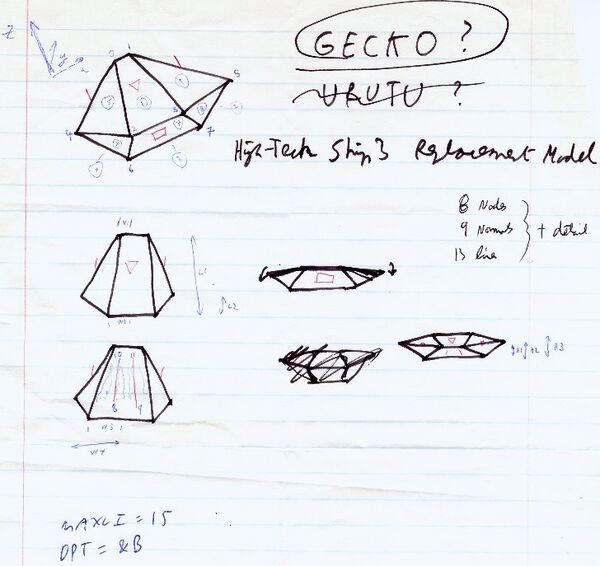 GECKO ?
URUTU ?
High-Tech Ship 3 Replacement Model
8 Nodes
9 Normals
13 line
+ detail
Z
y
x
0
1
5
4
6
7
L1
L2
8
MAXLI = 15
OPT = &B